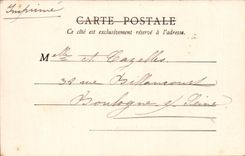 Imprimé
CARTE POSTALE
Ce côté est exclusivement réservé à l'adresse.
Mlle et Cazelles
32 rue Billancourt
Boulogne s/ Seine